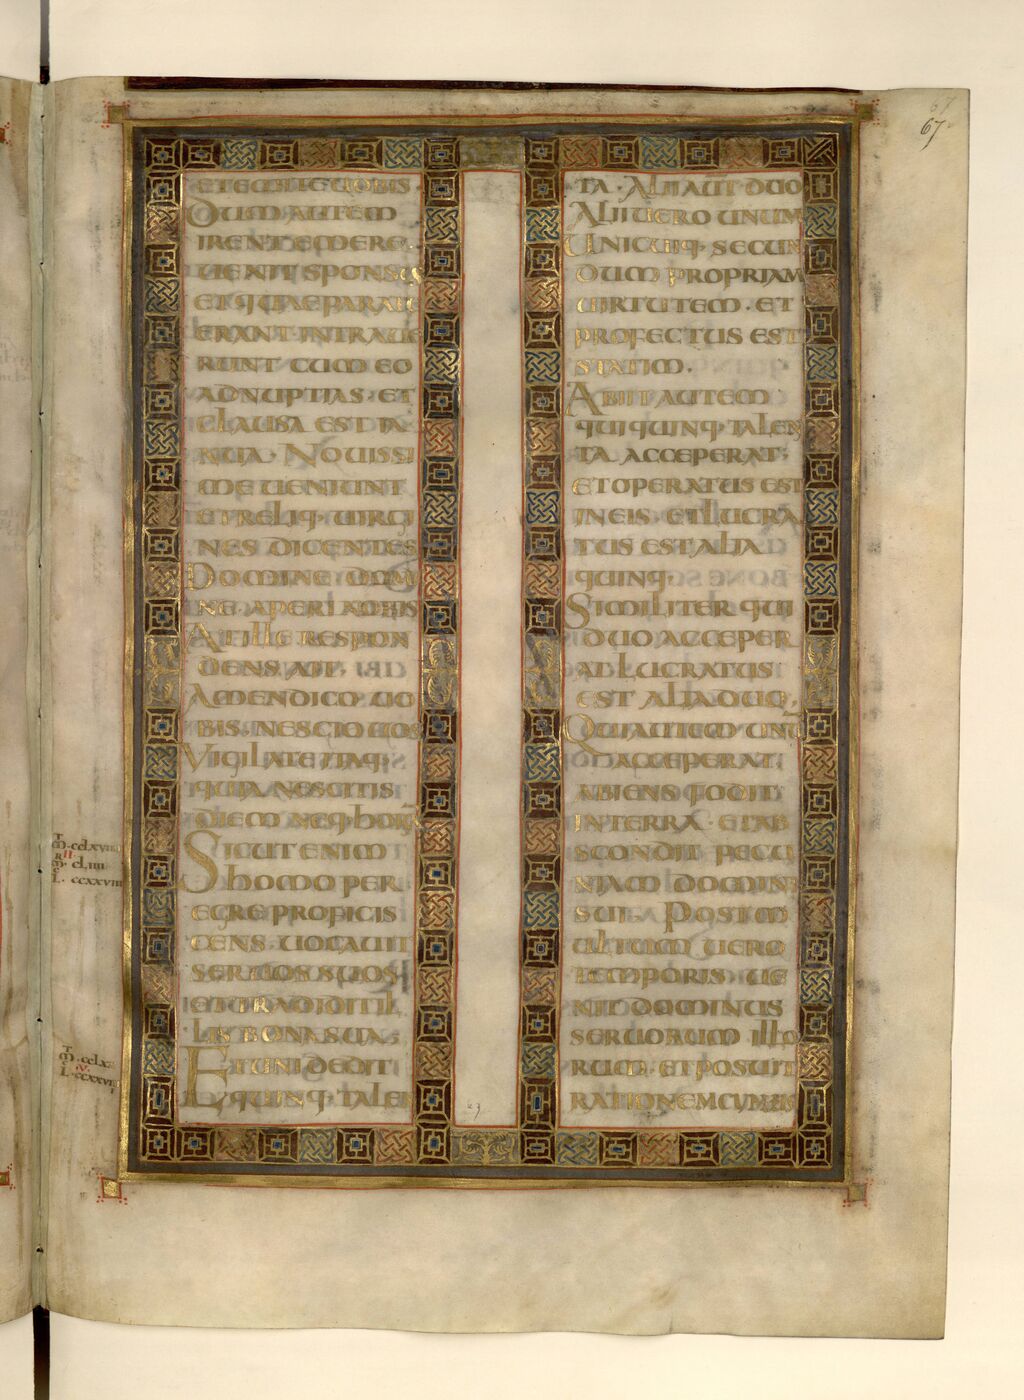 67
67
ETEMITE UOBIS
DUM AUTEM
IRENT EMERE
UENIT SPONSUS
ET QUAE PARAU
ERANT INTRAUE
RUNT CUM EO
AD NUPTIAS ET
CLAUSA EST IA
NUA NOUISSI
ME UENIUNT
ET RELIQ· UIRGI
NES DICENTES
DOMINE DOMI
NE APERI NOBIS
AT ILLE RESPON
DENS AIT
AMEN DICO UO
BIS NESCIO UOS
VIGILATE ITAQ·
QUIA NESCITIS
DIEM NEQ· HORĀ
SICUT ENIM
HOMO PER
EGRE PROFICIS
CENS UOCAUIT
SERUOS SUOS
ET TRADIDIT IL
LIS BONA SUA
ET UNI DEDIT
QUINQ· TALEN
TA ALII AUT DUO
ALII UERO UNUM
UNICUIQ· SECUN
DUM PROPRIAM
UIRTUTEM ET
PROFECTUS EST
STATIM
ABIIT AUTEM
QUI QUINQ· TALEN
TA ACCEPERAT
ET OPERATUS EST
IN EIS ET LUCRA
TUS EST ALIA
QUINQ·
SIMILITER QUI
DUO ACCEPER
AT LUCRATUS
EST ALIA DUO
QUI AUTEM UNŪ
ACCEPERAT
ABIENS FODIT
IN TERRA ET AB
SCONDIT PECU
NIAM DOMINI
SUI POST M
ULTUM UERO
TEMPORIS UE
NIT DOMINUS
SERUORUM ILLO
RUM ET POSUIT
RATIONEM CUM EIS